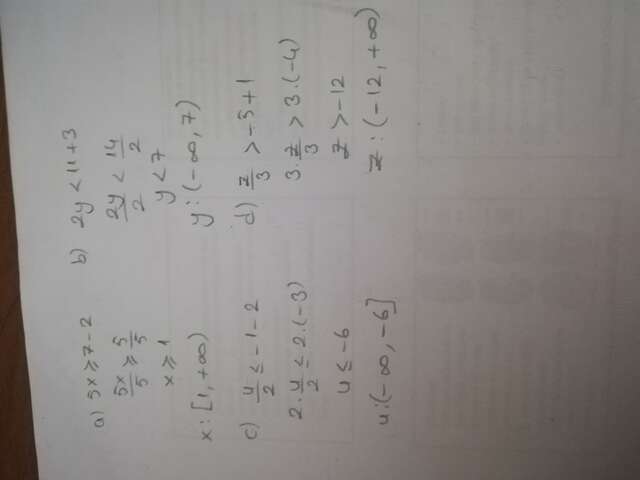 a) 5x ≥ 7-2
5x/5 ≥ 5/5
x ≥ 1
x: [1, +∞)
b) 2y < 11+3
2y/2 < 14/2
y < 7
y: (-∞, 7)
c) u/2 ≤ -1-2
2·u/2 ≤ 2·(-3)
u ≤ -6
u: (-∞, -6]
d) z/3 > -5+1
3·z/3 > 3·(-4)
z > -12
z: (-12, +∞)